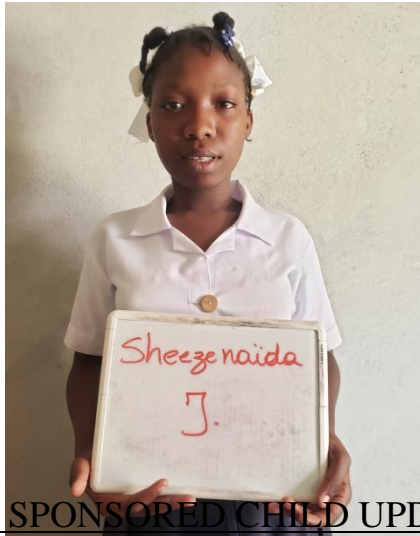 Sheezenaïda
J.
SPONSORED CHILD UPD